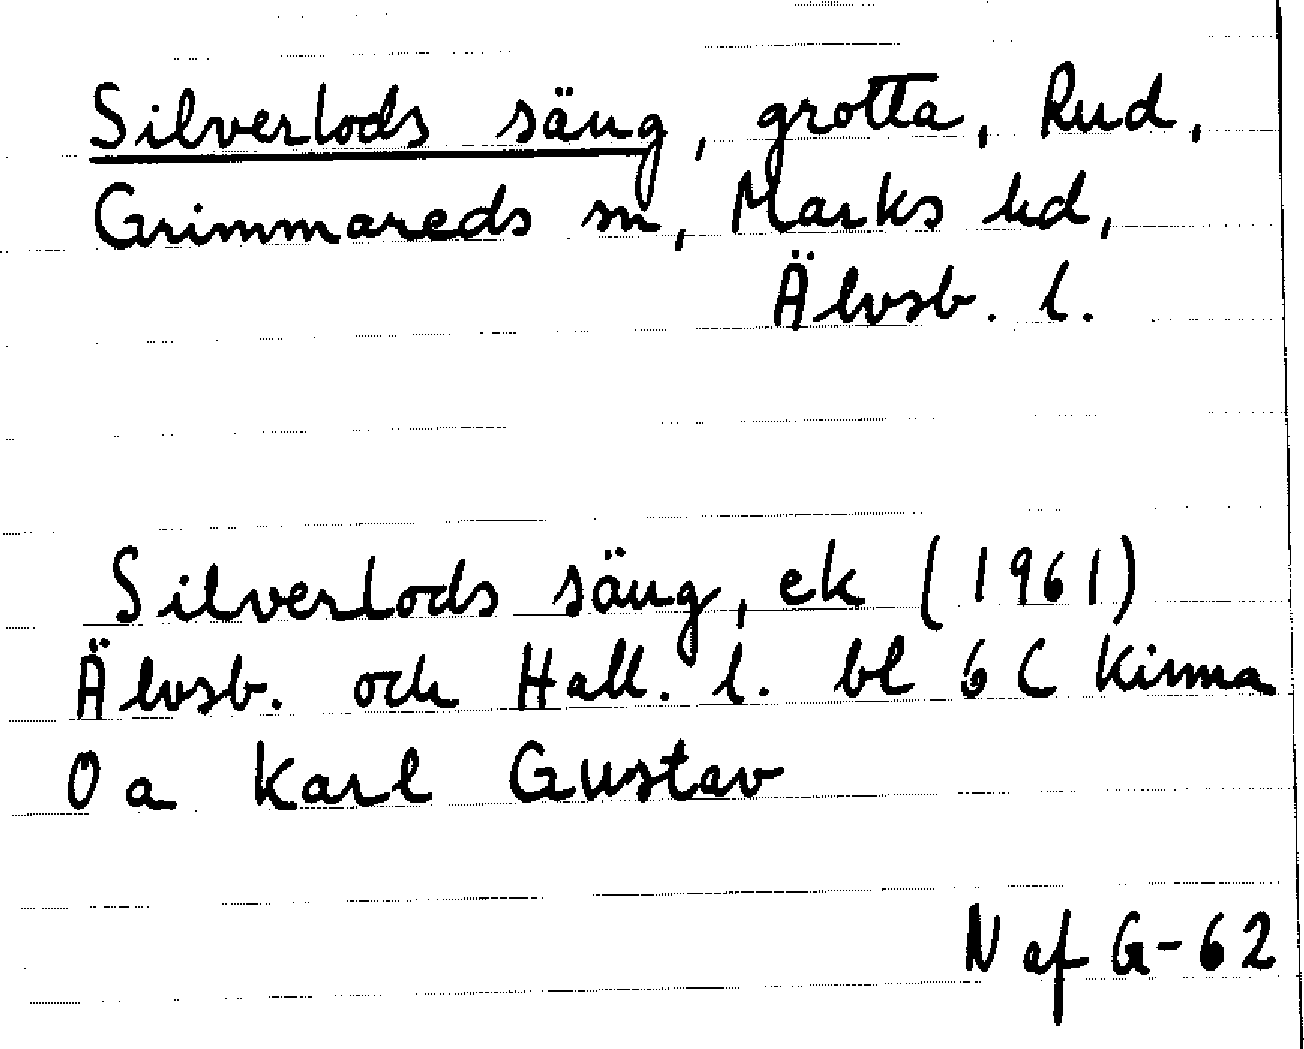 Silverlods säng, grotta, Rud,
Grimmareds sn, Marks hd,
Älvsb. l.
Silverlods säng, ek (1961)
Älvsb. och Hall. l. bl 6 C Kinna
O a Karl Gustav
N af G-62